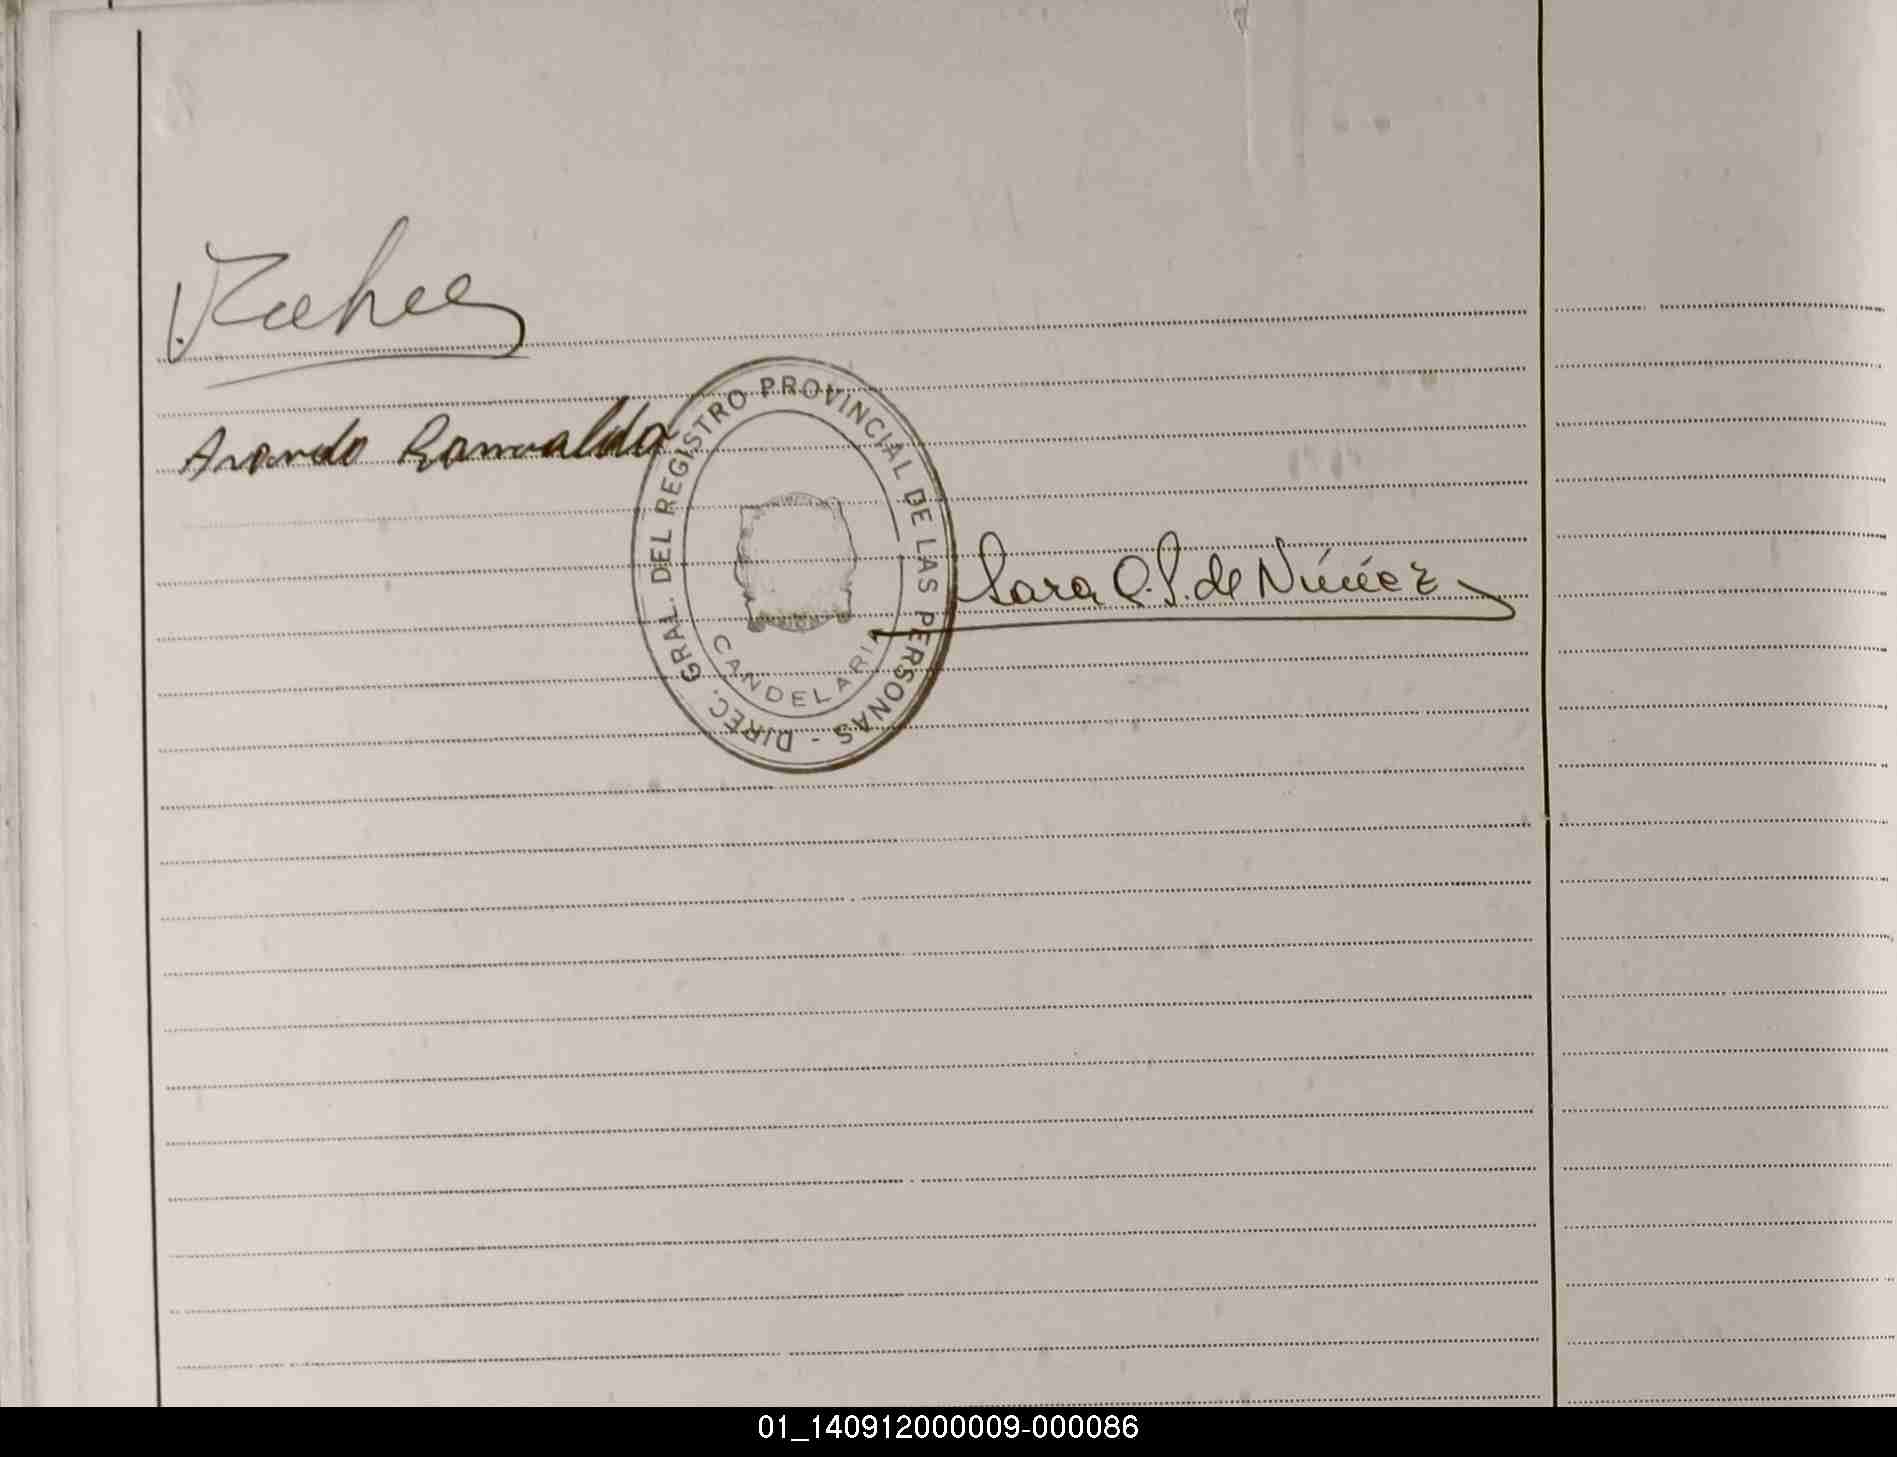 Romualdo
DIREC. GRAL. DEL REGISTRO PROVINCIAL DE LAS PERSONAS -
CANDELARIA
Sara Q. S. de Núñez
01_140912000009-000086